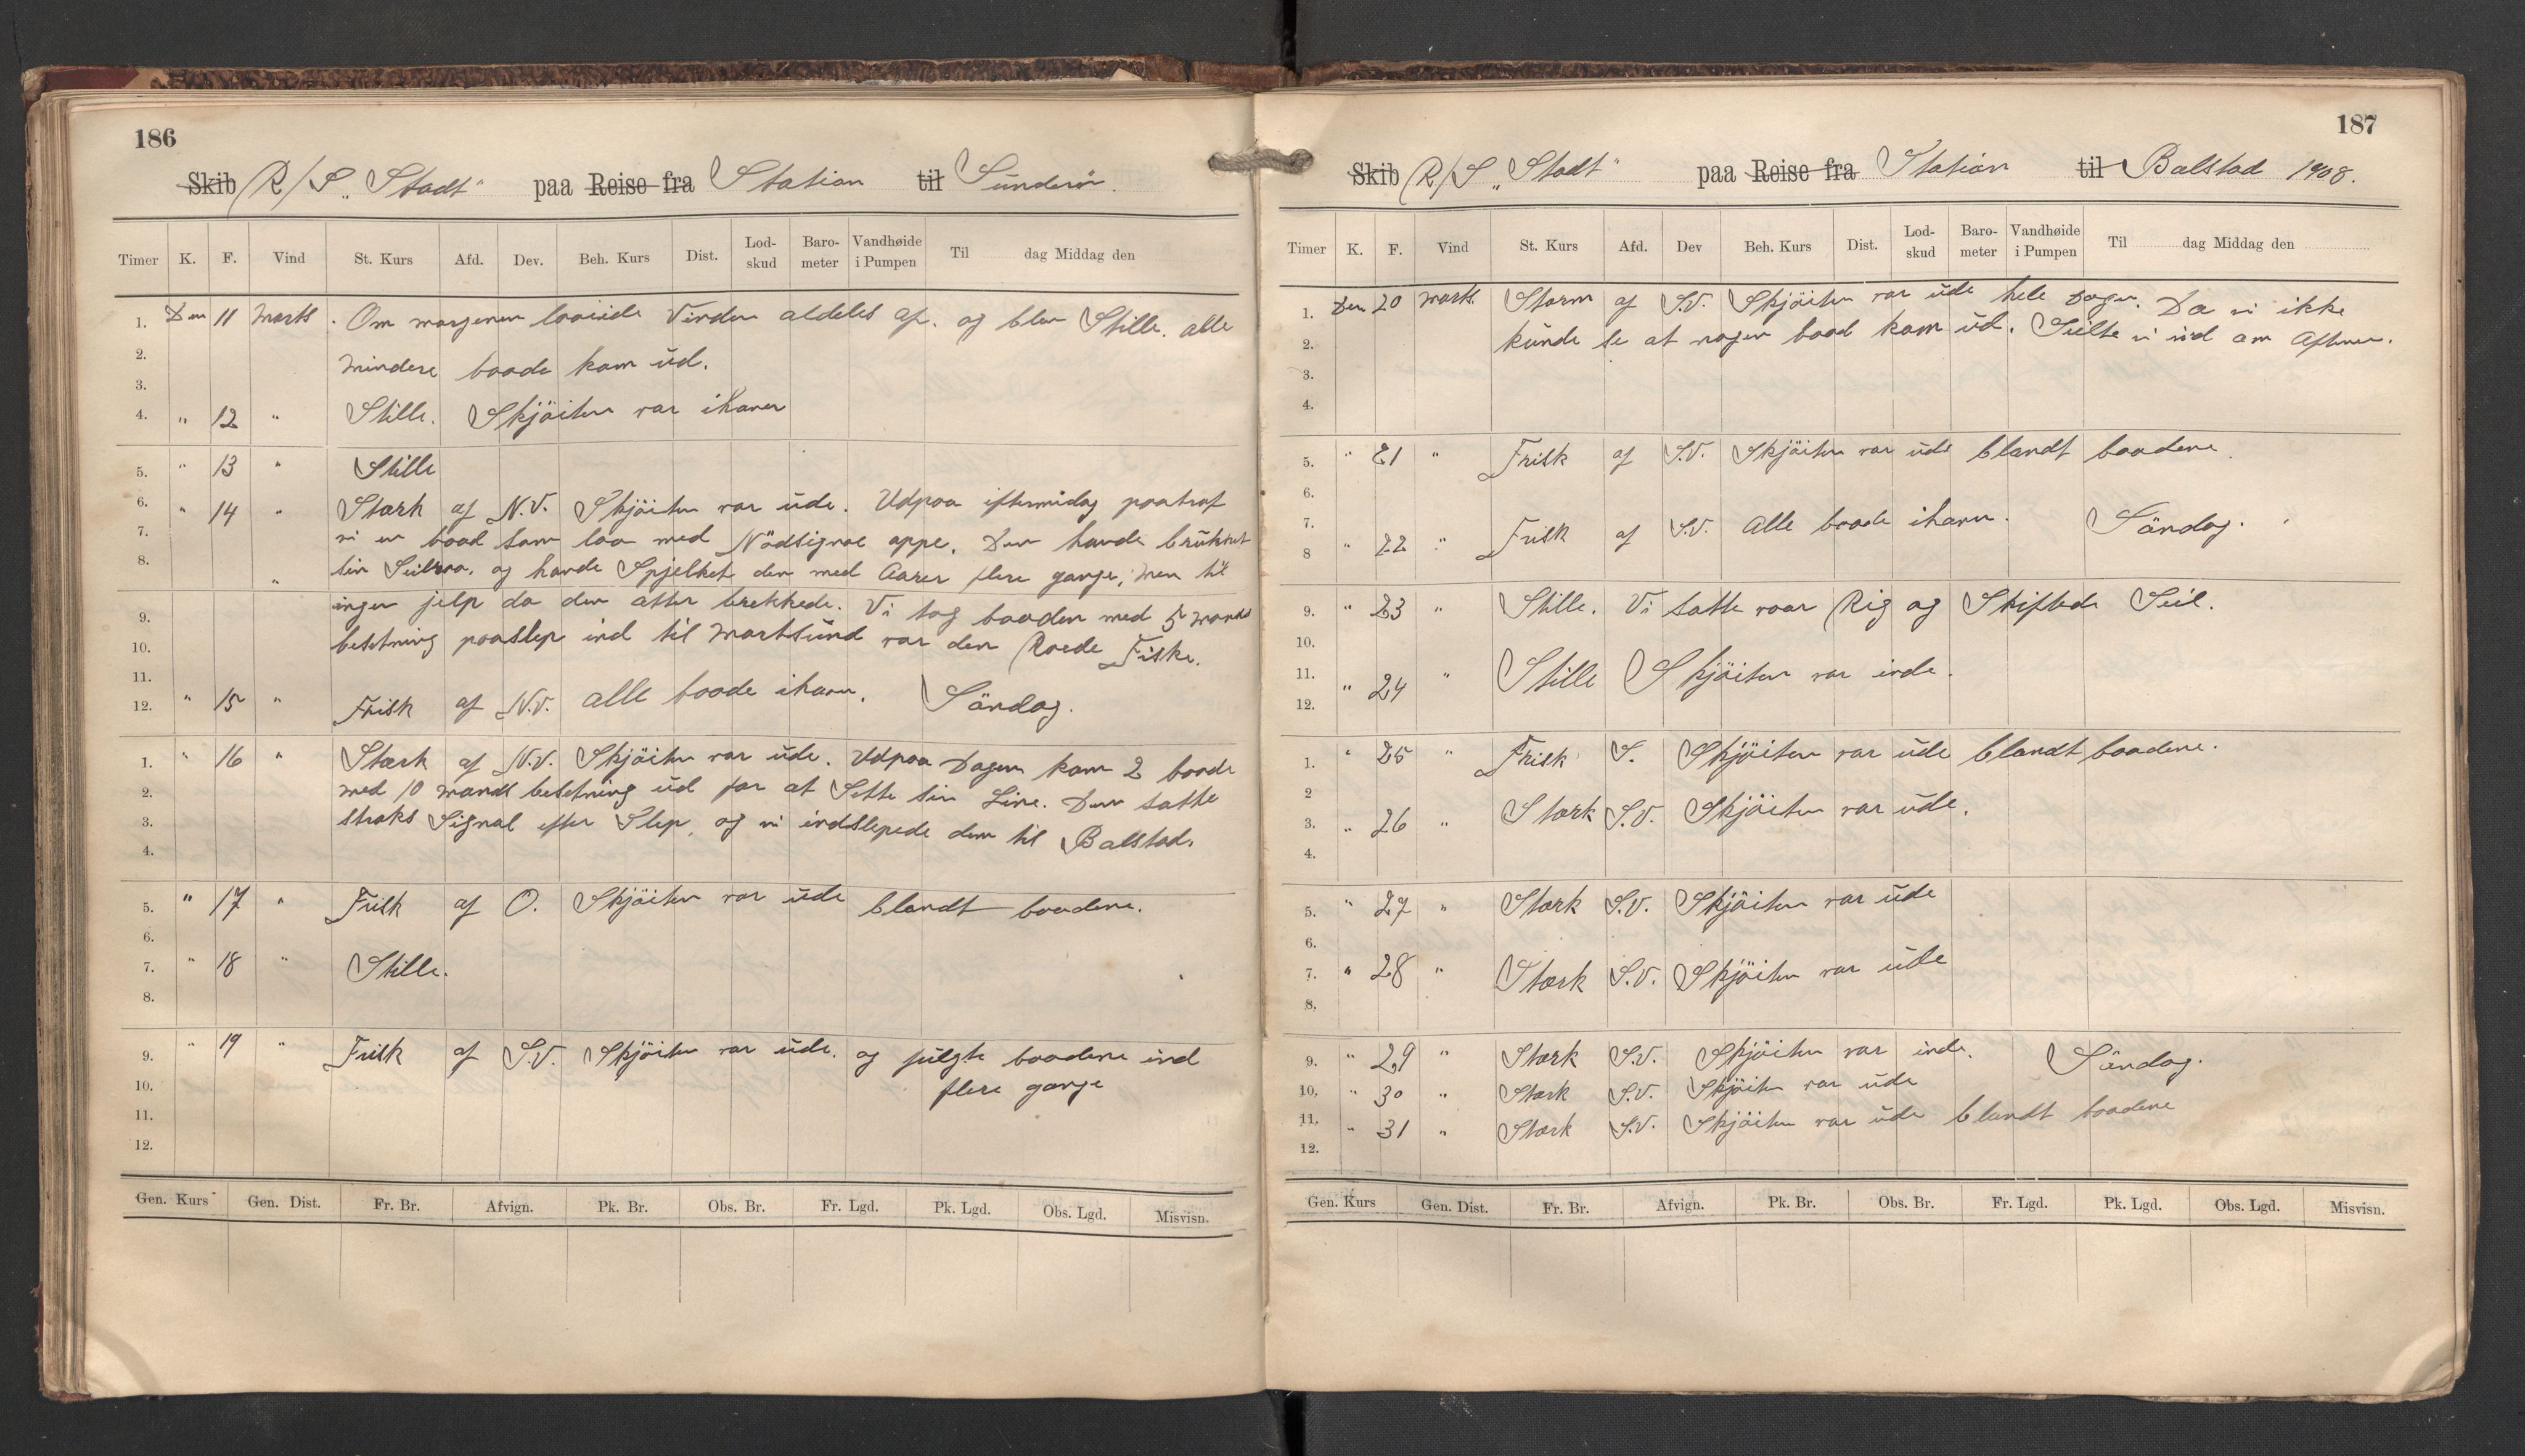 186
Skib R/S „Stadt" paa Reise fra Station til Sunderör.
Timer K. F. Vind St. Kurs Afd. Dev. Beh. Kurs Dist. Lod-skud Baro-meter Vandhøide i Pumpen Til dag Middag den
1. Den 11 Marts. Om morgenen looiede Vinden aldeles af. og blev Stille. alle
2. mindere baade kom ud.
3.
4. " 12 " Stille. Skjöiten var ihavn
5. " 13 " Stille
6. " 14 " Stærk af N.V. Skjöiten var ude. Udpaa eftermidag paatraf
7. vi en baad som laa med Nödsignal oppe. Den havde brukket
8. sin Seilraa. og havde Spjelket den med Aarer flere gange, men til
" ingen jelp da den atter brekkede. Vi tog baaden med 5 mands
9.
10. besetning paaslep ind til Martsund var den Roede Fiske.
11.
12. " 15 " Frisk af N.V. alle baade ihavn. Söndag.
1. " 16 " Stærk af N.V. Skjöiten var ude. Udpaa Dagen kom 2 baade
2. med 10 mands besetning ud for at Sette sin Line. Den satte
3. straks Signal efter Slep, og vi indslepede dem til Balstad.
4.
5. " 17 " Frisk af O. Skjöiten var ude blandt baadene.
6.
7. " 18 " Stille.
8.
9. " 19 " Frisk af S.V. Skjöiten var ude. og fulgte baadene ind
10. flere gange
11.
12.
Gen. Kurs Gen. Dist. Fr. Br. Afvign. Pk. Br. Obs. Br. Fr. Lgd. Pk. Lgd. Obs. Lgd. Misvisn.
187
Skib R/S „Stadt" paa Reise fra Station til Balstad 1908.
Timer K. F. Vind St. Kurs Afd. Dev Beh. Kurs Dist. Lod-skud Baro-meter Vandhøide i Pumpen Til dag Middag den
1. Den 20 Marts. Storm af S.V. Skjöiten var ude hele Dagen. Da vi ikke
2. kunde se at nogen baad kom ud. Seilte vi ind om Aftenen.
3.
4.
5. " 21 " Frisk af S.V. Skjöiten var ude blandt baadene.
6.
7.
8 " 22 " Frisk af S.V. Alle baade ihavn. Söndag.
9. " 23 " Stille. Vi satte vaar Rig og Skiftede Seil.
10.
11. " 24 " Stille Skjöiten var inde.
12.
1. " 25 " Frisk S. Skjöiten var ude blandt baadene.
2
3. " 26 " Stærk S.V. Skjöiten var ude.
4.
5. " 27 " Stærk S.V. Skjöiten var ude
6.
7. " 28 " Stærk S.V. Skjöiten var ude
8.
9. " 29 " Stærk S.V. Skjöiten var inde. Söndag.
10. " 30 " Stærk S.V. Skjöiten var ude
11. " 31 " Stærk S.V. Skjöiten var ude blandt baadene
12.
Gen. Kurs Gen. Dist. Fr. Br. Afvign. Pk. Br. Obs. Br. Fr. Lgd. Pk. Lgd. Obs. Lgd. Misvisn.